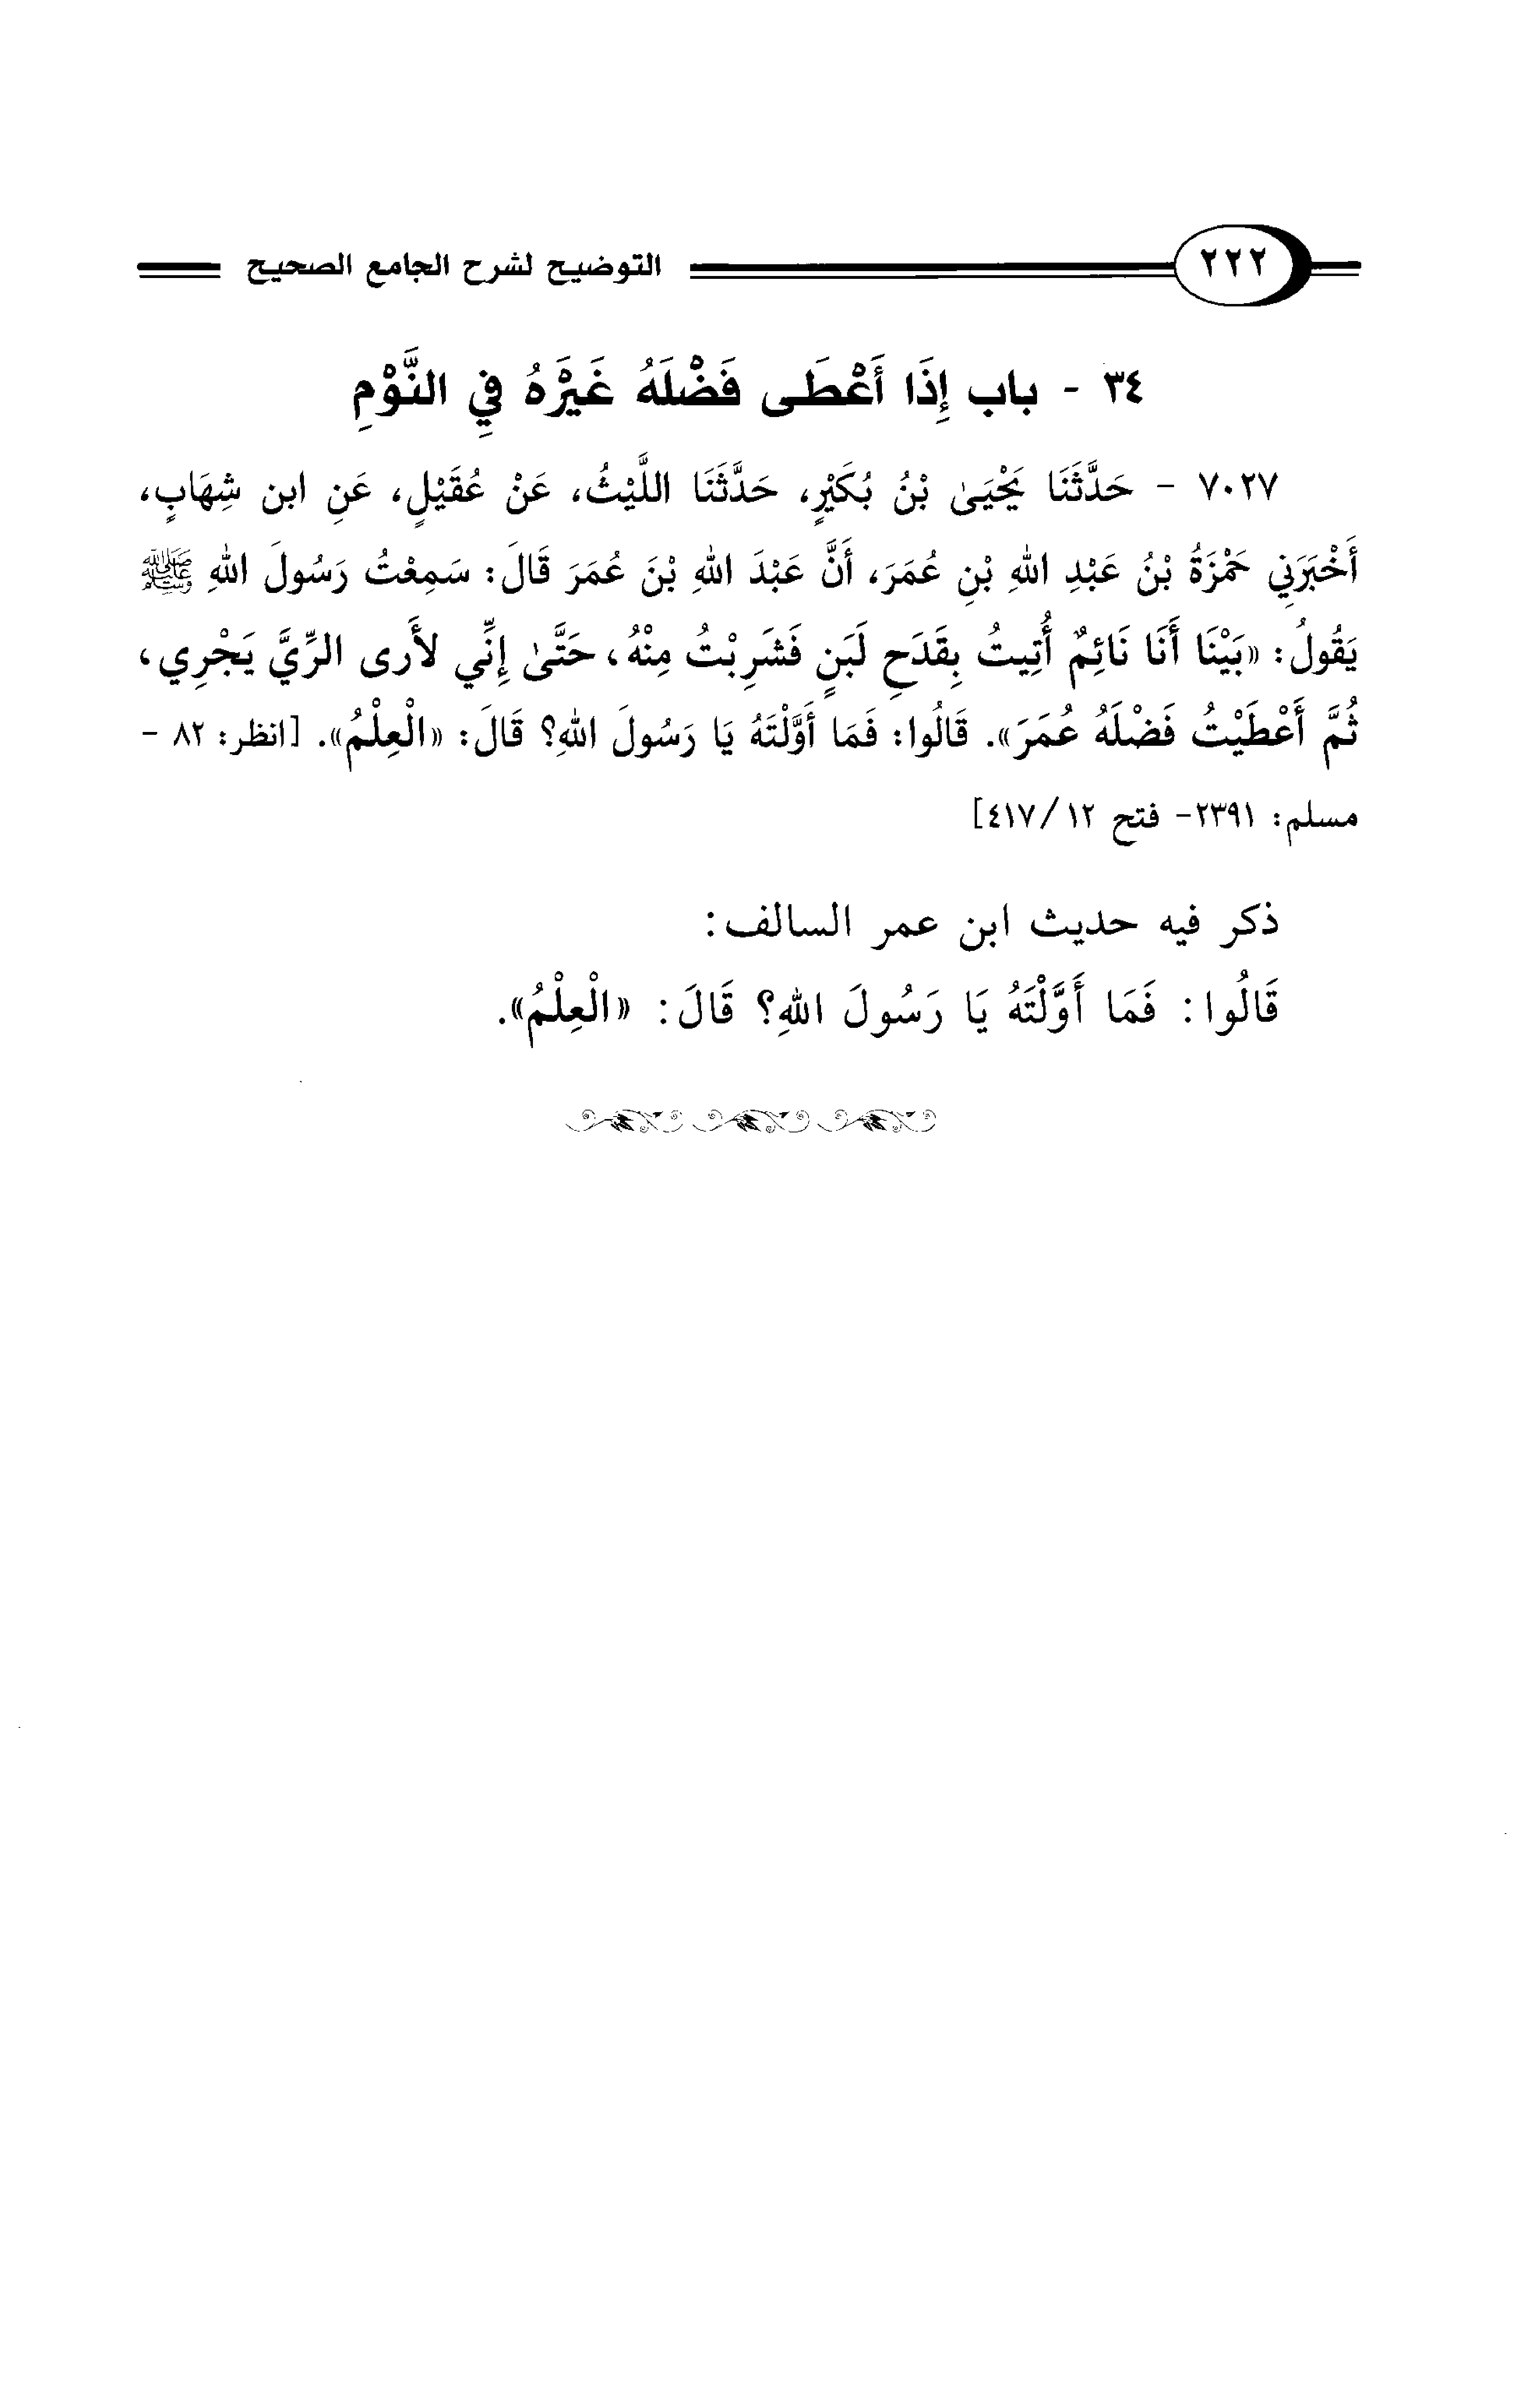 ٢٢٢ التوضيح لشرح الجامع الصحيح
٣٤ - باب إِذَا أَعْطَى فَضْلَهُ غَيْرَهُ فِي النَّوْمِ
٧٠٢٧ - حَدَّثَنَا يَحْيَىٰ بْنُ بُكَيْرٍ، حَدَّثَنَا اللَّيْثُ، عَنْ عُقَيْلٍ، عَنِ ابن شِهَابٍ،
أَخْبَرَنِي حَمْزَةُ بْنُ عَبْدِ اللهِ بْنِ عُمَرَ، أَنَّ عَبْدَ اللهِ بْنَ عُمَرَ قَالَ: سَمِعْتُ رَسُولَ اللهِ ﷺ
يَقُولُ: «بَيْنَا أَنَا نَائِمٌ أُتِيتُ بِقَدَحِ لَبَنٍ فَشَرِبْتُ مِنْهُ، حَتَّىٰ إِنِّي لأَرى الرِّيَّ يَجْرِي،
ثُمَّ أَعْطَيْتُ فَضْلَهُ عُمَرَ». قَالُوا: فَمَا أَوَّلْتَهُ يَا رَسُولَ اللهِ؟ قَالَ: «الْعِلْمُ». [انظر: ٨٢ -
مسلم: ٢٣٩١- فتح ١٢/ ٤١٧]
ذكر فيه حديث ابن عمر السالف:
قَالُوا: فَمَا أَوَّلْتَهُ يَا رَسُولَ اللهِ؟ قَالَ: «الْعِلْمُ».